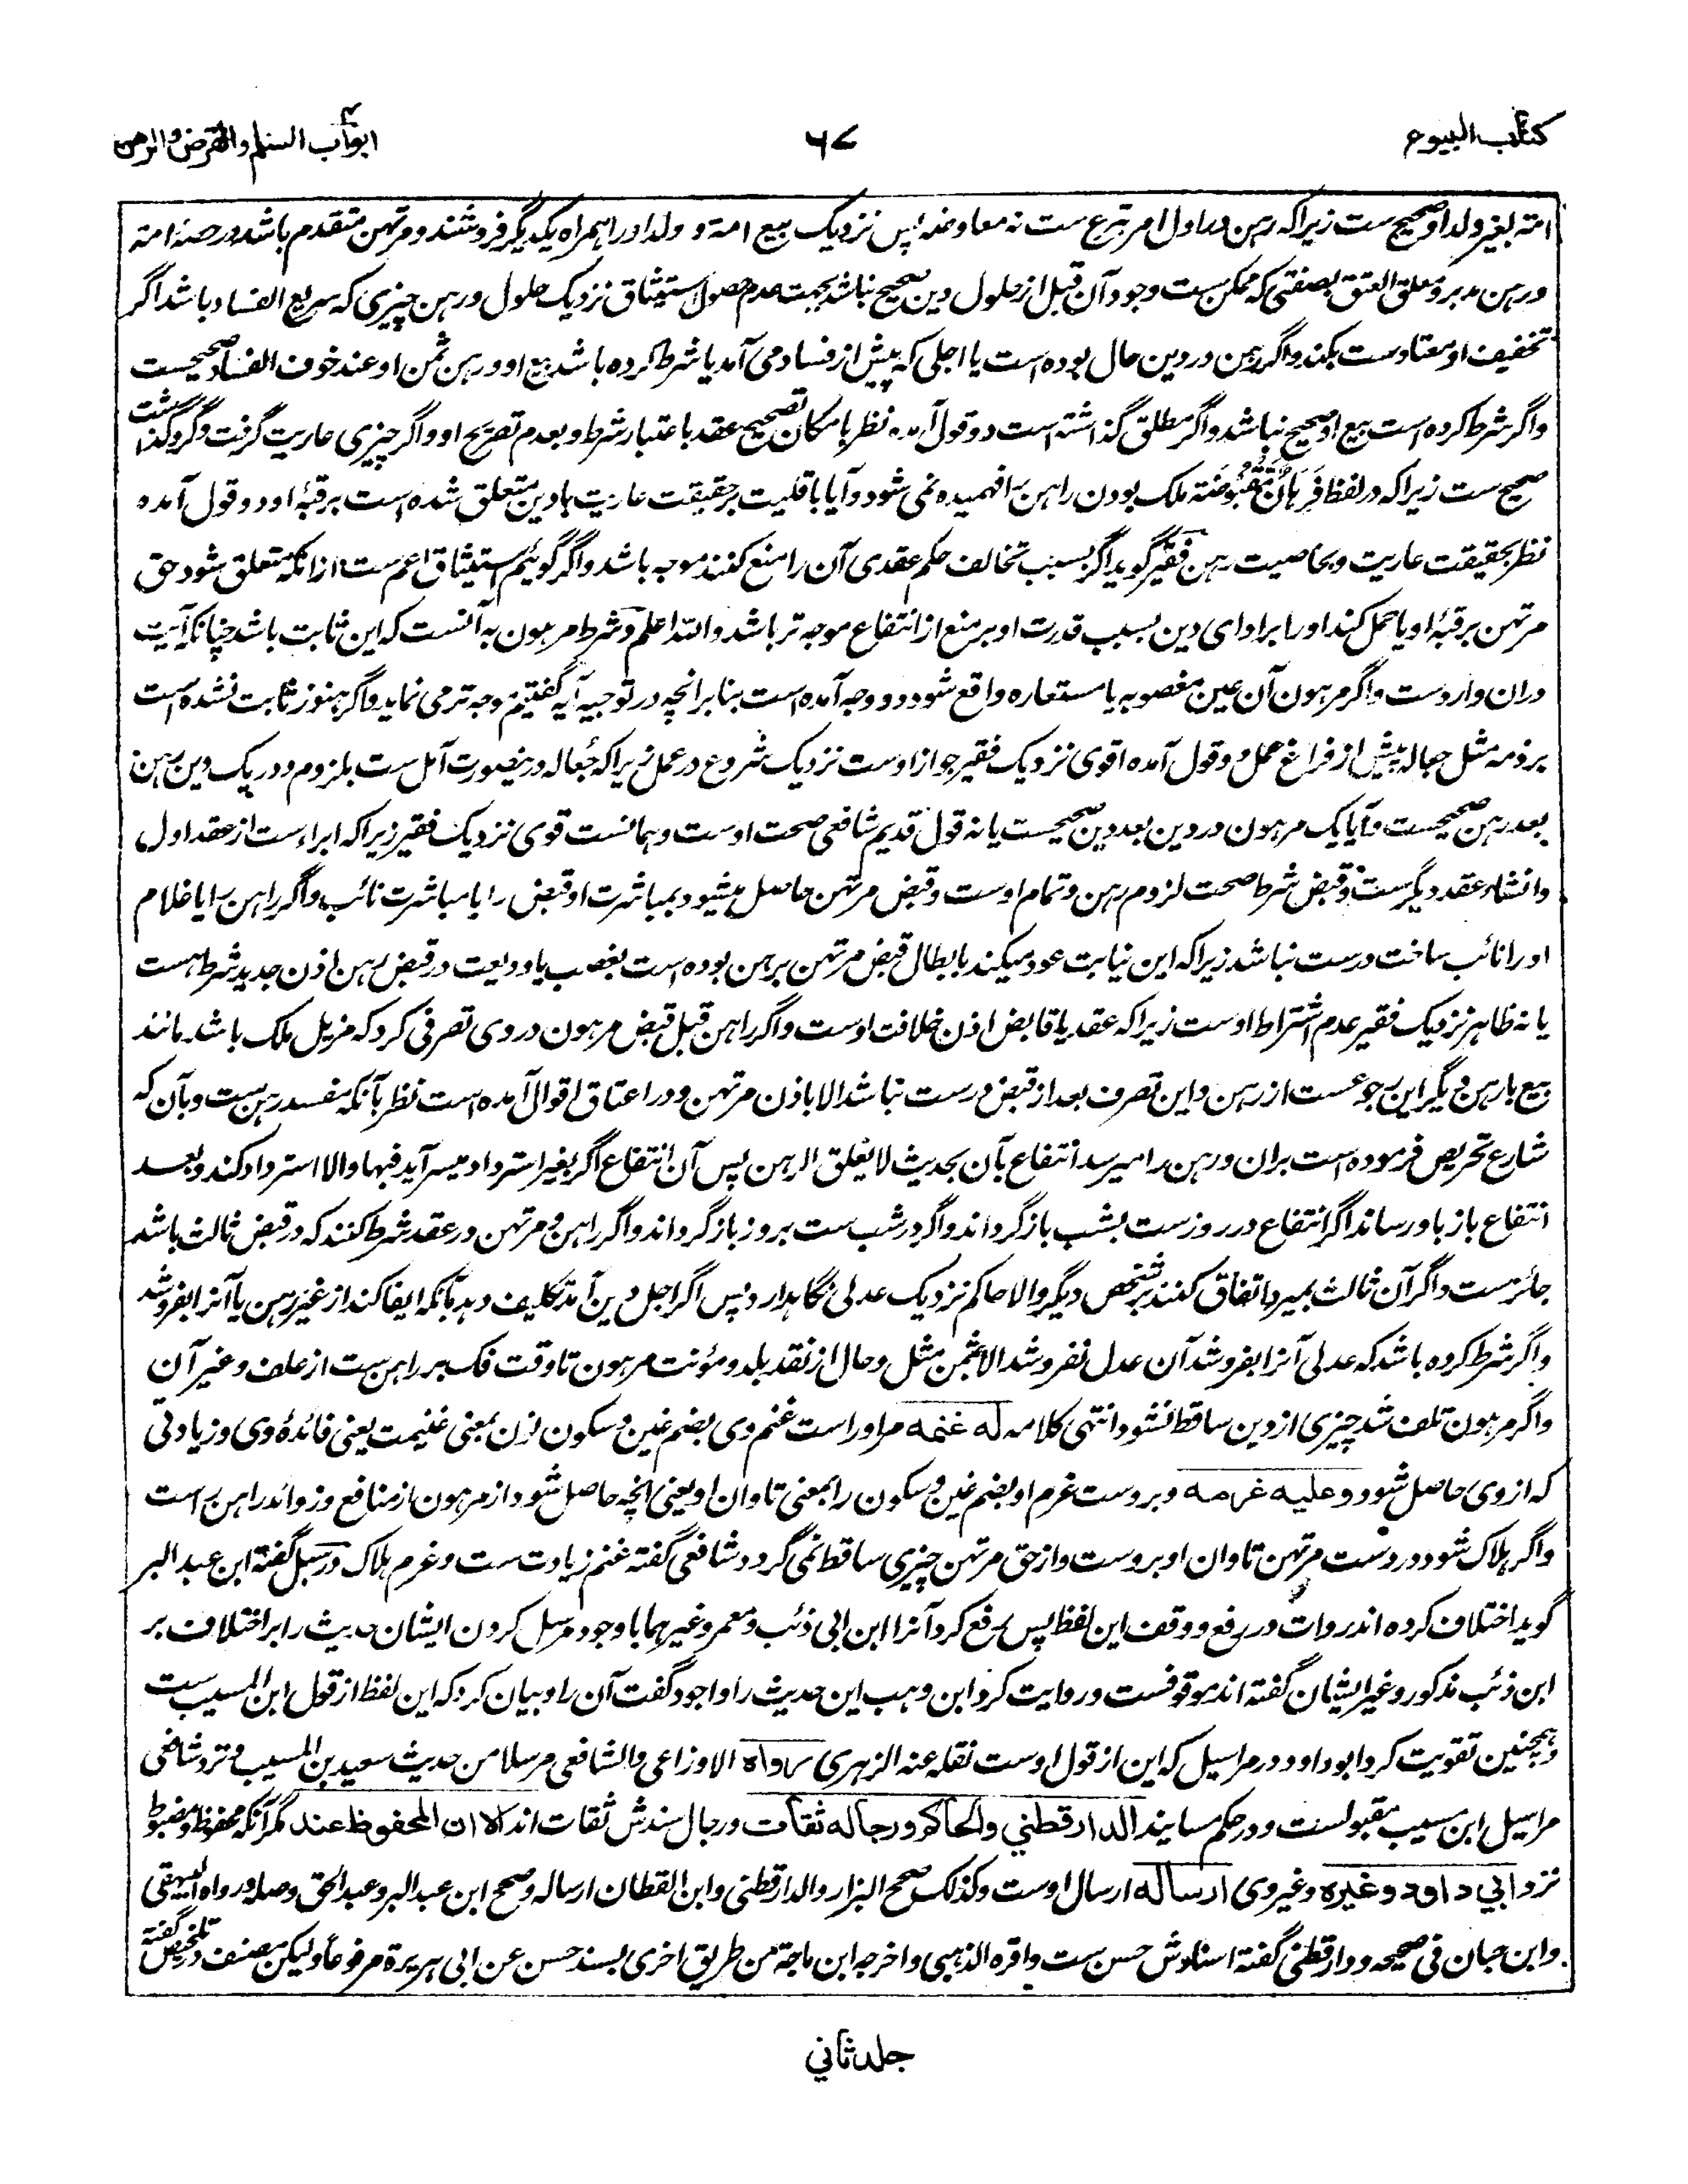 کتاب البیوع
۶۷
ابواب السلم والقرض والرهن
امته بغیر ولد او صحیح ست زیراکه رهن در اول امر تبرع ست نه معاوضه پس نزدیک بیع امة و ولد اورا همراه یکدیگر فروشند و مرتهن متقدم باشد در حصهٔ امته
ورهن مدبر و معلق العتق بصفتی که ممکن ست وجود آن قبل از حلول دین صحیح نباشد بجهت عدم حصول استیثاق نزدیک حلول ورهن چیزی که سریع الفساد باشد اگر
تخفیف او معتادست بکند و اگر رهن در دین حال بوده است یا اجلی که پیش از فساد می آمد یا شرط کرده باشد بیع او و رهن ثمن او عند خوف الفساد صحیحست
واگر شرط کرده است بیع او صحیح نباشد و اگر مطلق گذاشته است دو قول آمده نظر بامکان تصحیح عقد باعتبار شرط و بعدم تصریح او و اگر چیزی عاریت گرفت و گرو گذاشت
صحیح ست زیراکه در لفظ فَرِهَانٌ مَّقْبُوضَةٌ ملک بودن راهن را فهمیده نمی شود و آیا باقیست بر حقیقت عاریت یا دین متعلق شده است برقبهٔ او دو قول آمده
نظر بحقیقت عاریت و بخاصیت رهن فقیر گوید اگر بسبب تخالف حکم عقدی آن را منع کنند موجه باشد و اگر گوئیم استیثاق اعم ست ازانکه متعلق شود حق
مرتهن برقبهٔ او یا حمل کند اورا بر ادای دین بسبب قدرت او بر منع از انتفاع موجه تر باشد والله اعلم و شرط مرهون به آنست که این ثابت باشد چنانکه آیت
دران واردست و اگر مرهون آن عین مغصوبه یا مستعاره واقع شود دو وجه آمده است بنابر انچه در توجیه آیه گفتیم وجه تر می نماید و اگر هنوز ثابت نشده است
بر ذمه مثل جعاله پیش از فراغ عمل دو قول آمده اقوی نزدیک فقیر جواز اوست نزدیک شروع در عمل زیراکه جُعاله درینصورت آئل ست بلزوم و در یک دین رهن
بعد رهن صحیحست و آیا یک مرهون در دین بعد دین صحیحست یا نه قول قدیم شافعی صحت اوست و همانست قوی نزدیک فقیر زیراکه ابراءست از عقد اول
و انشاء عقد دیگرست و قبض شرط صحت لزوم رهن و تمام اوست و قبض مرتهن حاصل میشود بمباشرت او قبض را یا مباشرت نائب و اگر راهن را یا غلام
اورا نائب ساخت درست نباشد زیراکه این نیابت عود میکند بابطال قبض مرتهن بر رهن بوده است بغصب یا ودیعت در قبض رهن اذن جدید شرط هست
یا نه ظاهر نزدیک فقیر عدم اشتراط اوست زیراکه عقد با قابض اذن خلافت اوست و اگر راهن قبل قبض مرهون در وی تصرفی کرد که مزیل ملک باشد مانند
بیع یا رهن دیگر این رجوعست از رهن و این تصرف بعد از قبض درست نباشد الا باذن مرتهن و در اعتاق اقوال آمده است نظر بآنکه مفسد رهن ست و بآن که
شارع تحریص فرموده است بران و رهن را میرسد انتفاع بآن بحدیث لا یغلق الرهن پس آن انتفاع اگر بغیر استرداد میسر آید فبها والا استرداد کند و بعد
انتفاع باز باو رساند اگر انتفاع در روزست بشب باز گرداند و اگر در شب ست بروز باز گرداند و اگر راهن و مرتهن در عقد شرط کنند که در قبض ثالث باشد
جائزست و اگر آن ثالث بمیرد اتفاق کنند بر شخص دیگر والا حاکم نزدیک عدلی نگاهدارد پس اگر اجل دین آمد تکلیف دهد بآنکه ایفا کند از غیر رهن یا آنرا بفروشد
واگر شرط کرده باشد که عدلی آنرا بفروشد آن عدل نفروشد الا بثمن مثل و حال از نقد بلد و مؤنت مرهون تا وقت فک بر راهن ست از علف و غیر آن
واگر مرهون تلف شد چیزی از دین ساقط نشود انتهی کلامه له غنمه مر اوراست غنم وی بضم غین و سکون نون بمعنی غنیمت یعنی فائدهٔ وی و زیادتی
که از وی حاصل شود وعلیه غرمه و بروست غرم او بضم غین و سکون را بمعنی تاوان او یعنی انچه حاصل شود از مرهون از منافع و زوائد راهن راست
واگر هلاک شود در دست مرتهن تاوان او بروست و از حق مرتهن چیزی ساقط نمی گردد شافعی گفته غنم زیادت ست و غرم هلاک در سبل گفته ابن عبدالبر
گوید اختلاف کرده اند روات در رفع و وقف این لفظ پس رفع کرد آنرا ابن ابی ذئب و معمر و غیرهما با وجود مرسل کردن ایشان حدیث را بر اختلاف بر
ابن ذئب مذکور و غیر ایشان گفته اند موقوفست و روایت کرد ابن وهب این حدیث را و اجود گفت آن را و بیان کرد که این لفظ از قول ابن المسیب ست
وهمچنین تقویت کرد ابو داود در مراسیل که این از قول اوست نقله عنه الزهری رواه الاوزاعی والشافعی مرسلا من حدیث سعید بن المسیب و نزد شافعی
مراسیل ابن مسیب مقبولست و در حکم مسانید الدارقطني والحاکم ورجاله ثقات و رجال سندش ثقات اند الا ان المحفوظ عند مگر آنکه محفوظ و مضبوط
نزد ابي داود وغیره و غیر وی ارساله ارسال اوست وکذلک صحح البزار والدارقطنی وابن القطان ارساله وصحح ابن عبدالبر وعبدالحق وصله ورواه البیهقی
وابن حبان فی صحیحه و دارقطنی گفته اسنادش حسن ست واقره الذهبی واخرجه ابن ماجة من طریق اخری بسند حسن عن ابی هریرة مرفوعاً ولیکن مصنف در تلخیص گفته
جلد ثاني